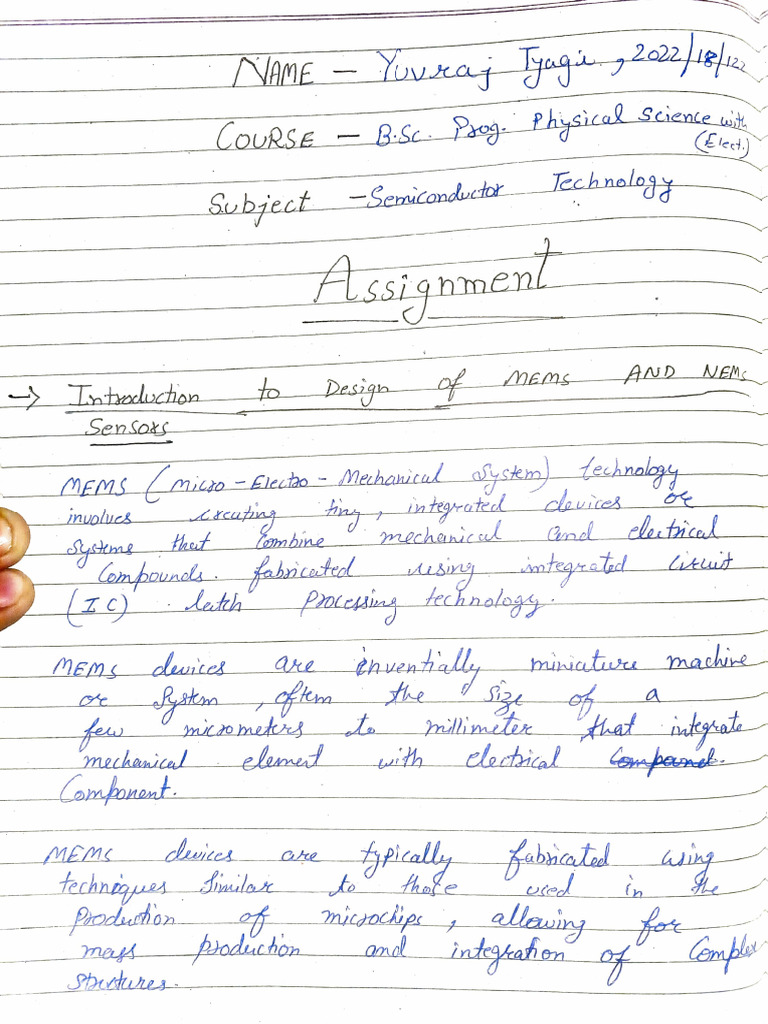 NAME - Yuvraj Tyagi, 2022/18/122
COURSE - B.Sc. Prog. Physical Science with
(Elect.)
Subject - Semiconductor Technology
Assignment
→ Introduction to Design of MEMS AND NEMS
Sensors
MEMS (Micro-Electro-Mechanical System) technology
involves creating tiny, integrated devices or
systems that combine mechanical and electrical
Compounds. fabricated using integrated Circuit
(IC) batch processing technology.
MEMS devices are inventially miniature machine
or System, oftem the size of a
few micrometers to millimeter, that integrate
mechanical element with electrical Compound.
Component.
MEMS devices are typically fabricated using
techniques Similar to those used in the
Production of microchips, allowing for
mass production and integration of Complex
structures.